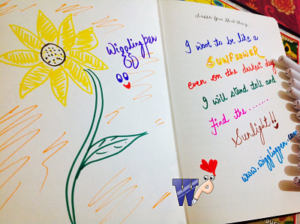 Wiggling pen
I want to be like a
SUNFLOWER
even on the darkest days
I will stand tall and
find the.......
Sunlight!!
www.wigglingpen.com